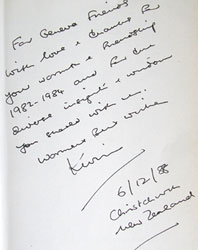 For Geneva Friends
with love & thanks for
your warmth & friendship
1982-1984 and for the
diverse insights & wisdom
you shared with us.
Warmest best wishes
Kevin
6/12/88
Christchurch
New Zealand